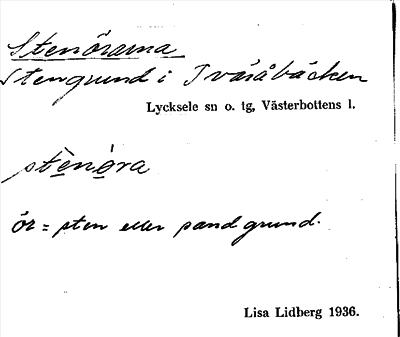 Stenörarna
Stengrund i Tvåråbäcken
Lycksele sn o. tg, Västerbottens l.
stènö̀ra
ör = sten eller sandgrund.
Lisa Lidberg 1936.